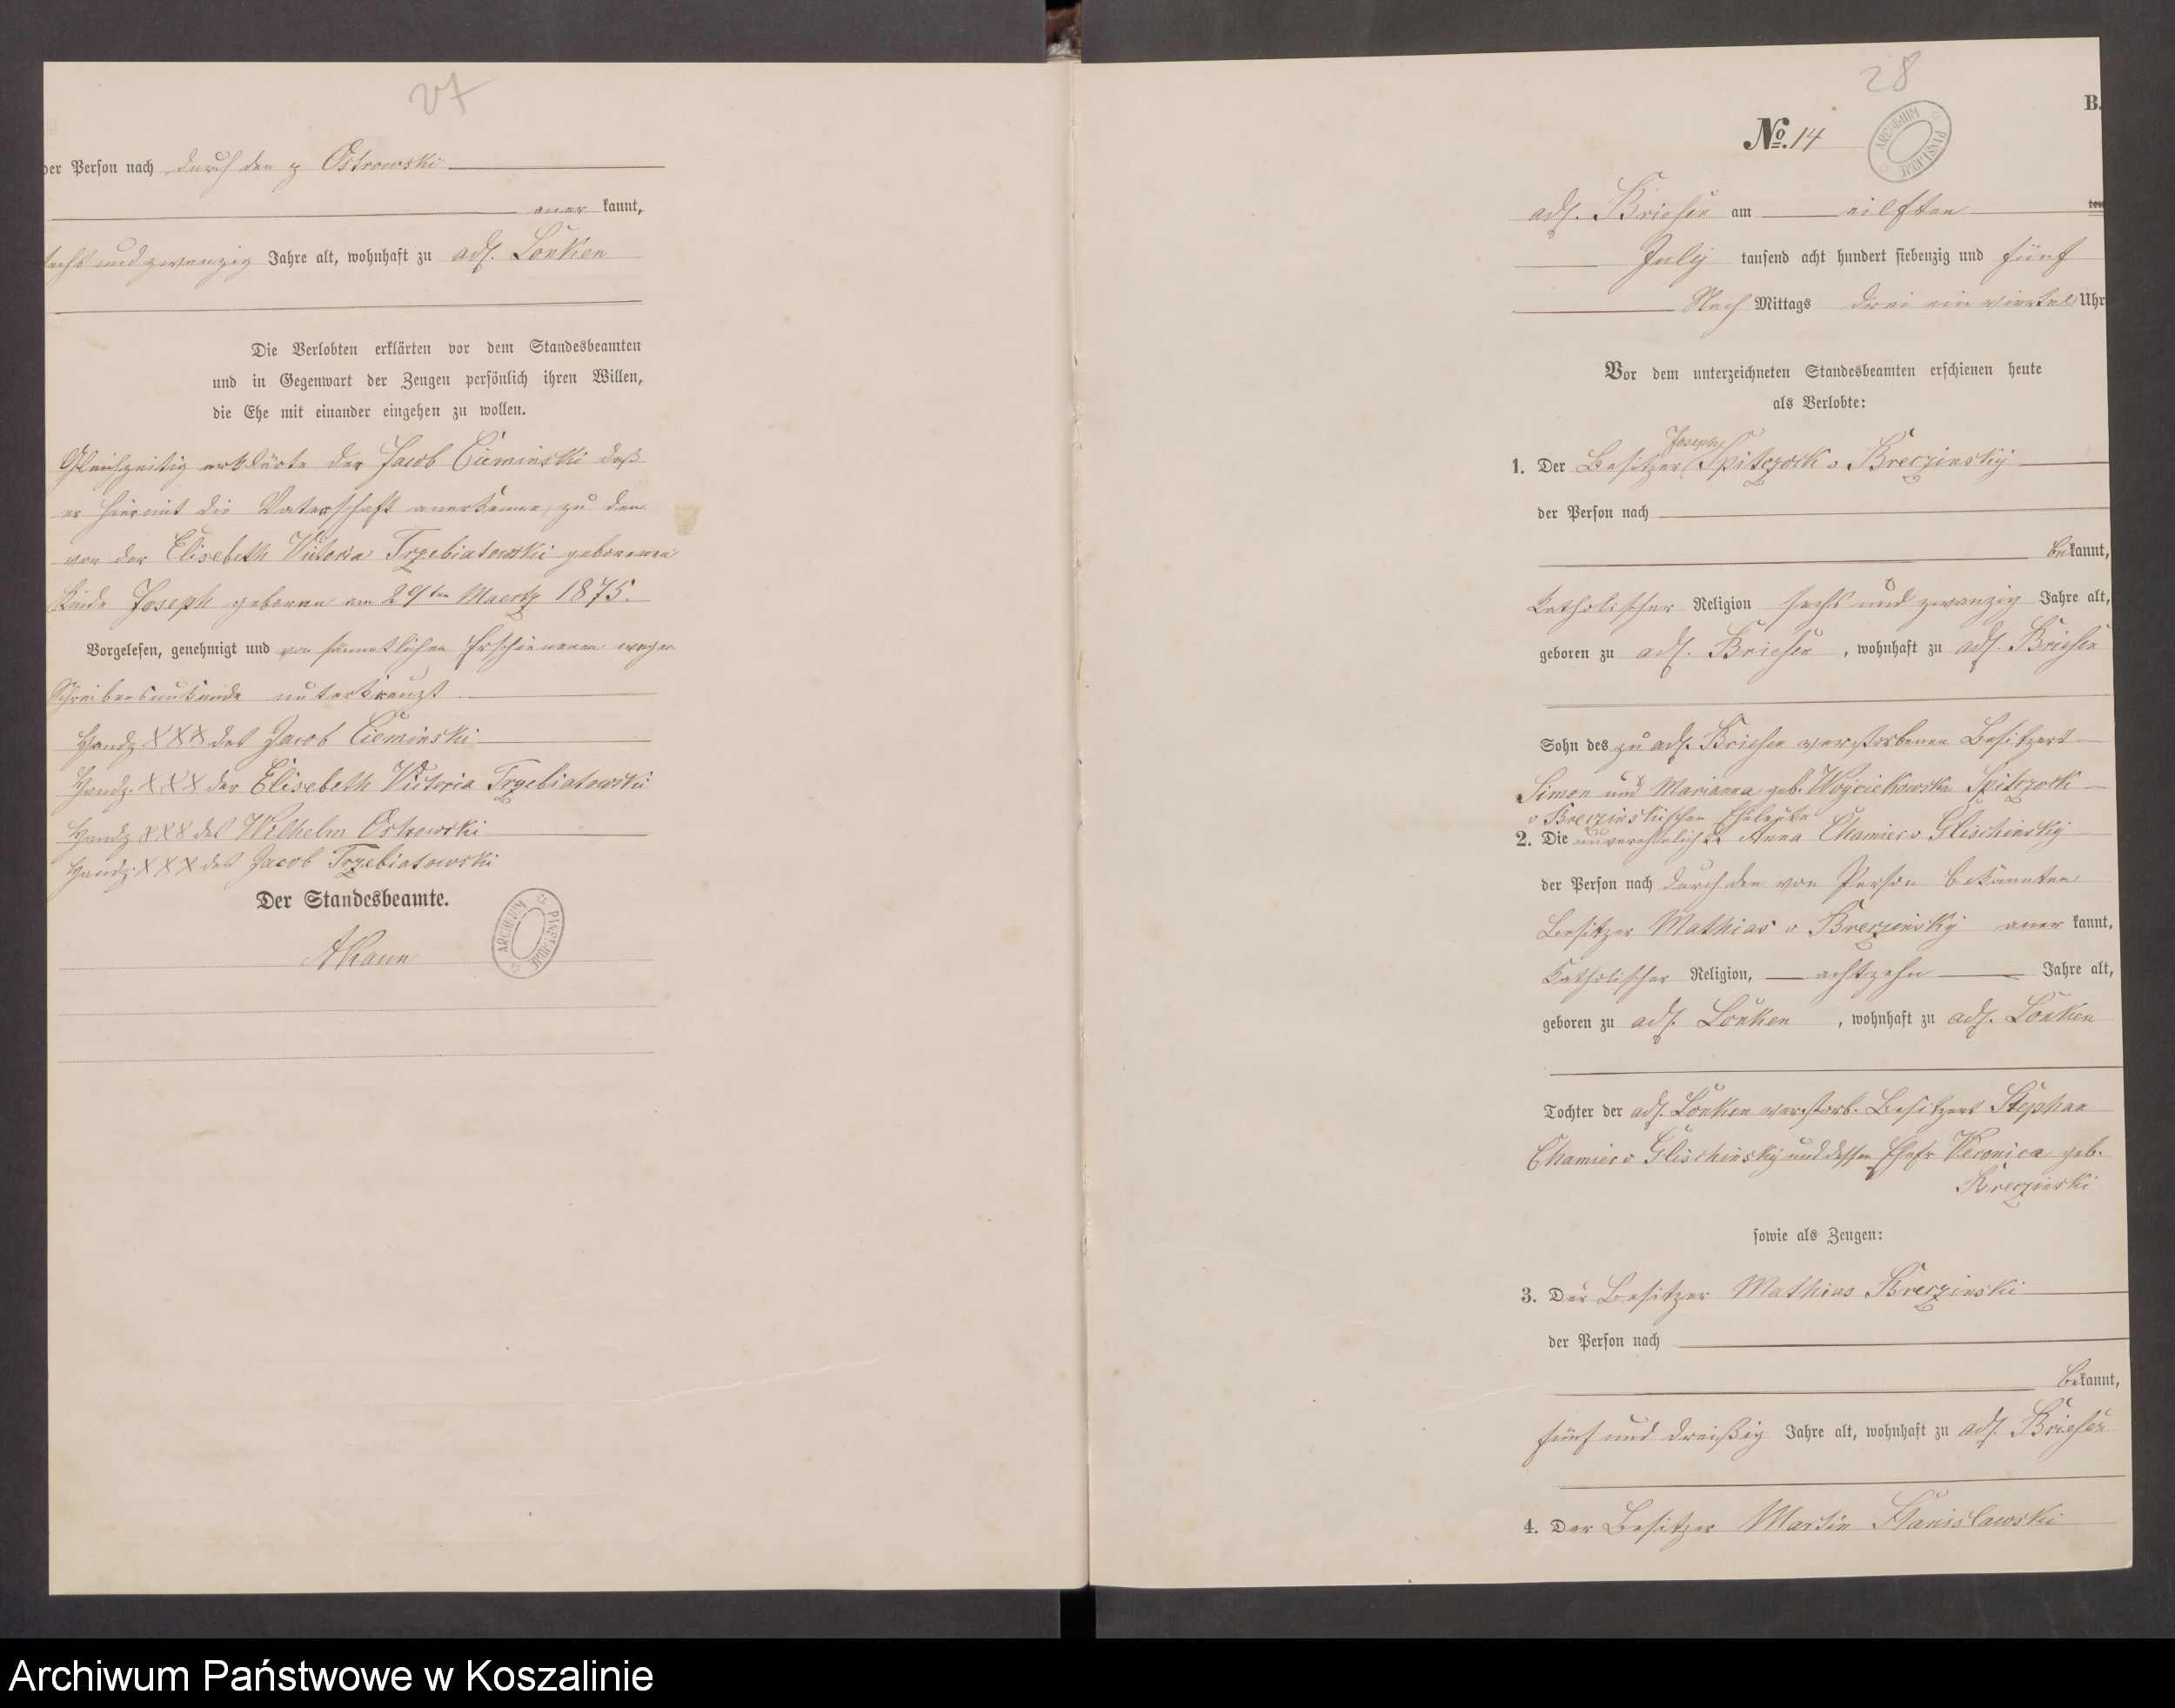 27
der Person nach durch den p Ostrowski
aner kannt,
sechs und zwanzig Jahre alt, wohnhaft zu adl. Lonken
Die Verlobten erklärten vor dem Standesbeamten
und in Gegenwart der Zeugen persönlich ihren Willen,
die Ehe mit einander eingehen zu wollen.
Gleichzeitig erklärte der Jacob Cieminski daß
er hiermit die Vaterschaft anerkenne, zu dem
von der Elisebeth Victoria Trzebiatowski geborenen
Kinde Joseph geboren am 29ten Maertz 1875.
Vorgelesen, genehmigt und von sämmtlichen Erschienenen wegen
Schreibensunkunde unterkreuzt.
Handz. XXX des Jacob Cieminski
Handz. XXX der Elisebeth Victoria Trzebiatowski
Handz. XXX des Wilhelm Ostrowski
Handz. XXX des Jacob Trzebiatowski
Der Standesbeamte.
ARCHIWUM PAŃSTWOWE
28
B.
No. 14
ARCHIWUM PAŃSTWOWE
adl. Briesen am eilften ten
July tausend acht hundert siebenzig und fünf
Nach Mittags drei ein viertel Uhr
Vor dem unterzeichneten Standesbeamten erschienen heute
als Verlobte:
Joseph
1. Der Besitzer Spitczock v Breczinsky
der Person nach
bekannt,
katholischer Religion sechs und zwanzig Jahre alt,
geboren zu adl. Briesen, wohnhaft zu adl. Briesen
Sohn des zu adl. Briesen verstorbenen Besitzers
Simon und Marianna geb. Woyciechowska Spitczock
v Breczinskischen Eheleute
2. Die unverehelichte Anna Chamier v Glischinsky
der Person nach durch den von Person bekannten
Besitzer Mathias v Breczinsky aner kannt,
katholischer Religion, achtzehn Jahre alt,
geboren zu adl. Lonken, wohnhaft zu adl. Lonken
Tochter der adl. Lonken verstorb. Besitzers Stephan
Chamier v Glischinsky und dessen Ehefr Veronica geb.
Breczinski
sowie als Zeugen:
3. Der Besitzer Mathias Breczinski
der Person nach
bekannt,
fünf und dreißig Jahre alt, wohnhaft zu adl. Briesen
4. Der Besitzer Martin Stanislawski
Archiwum Państwowe w Koszalinie